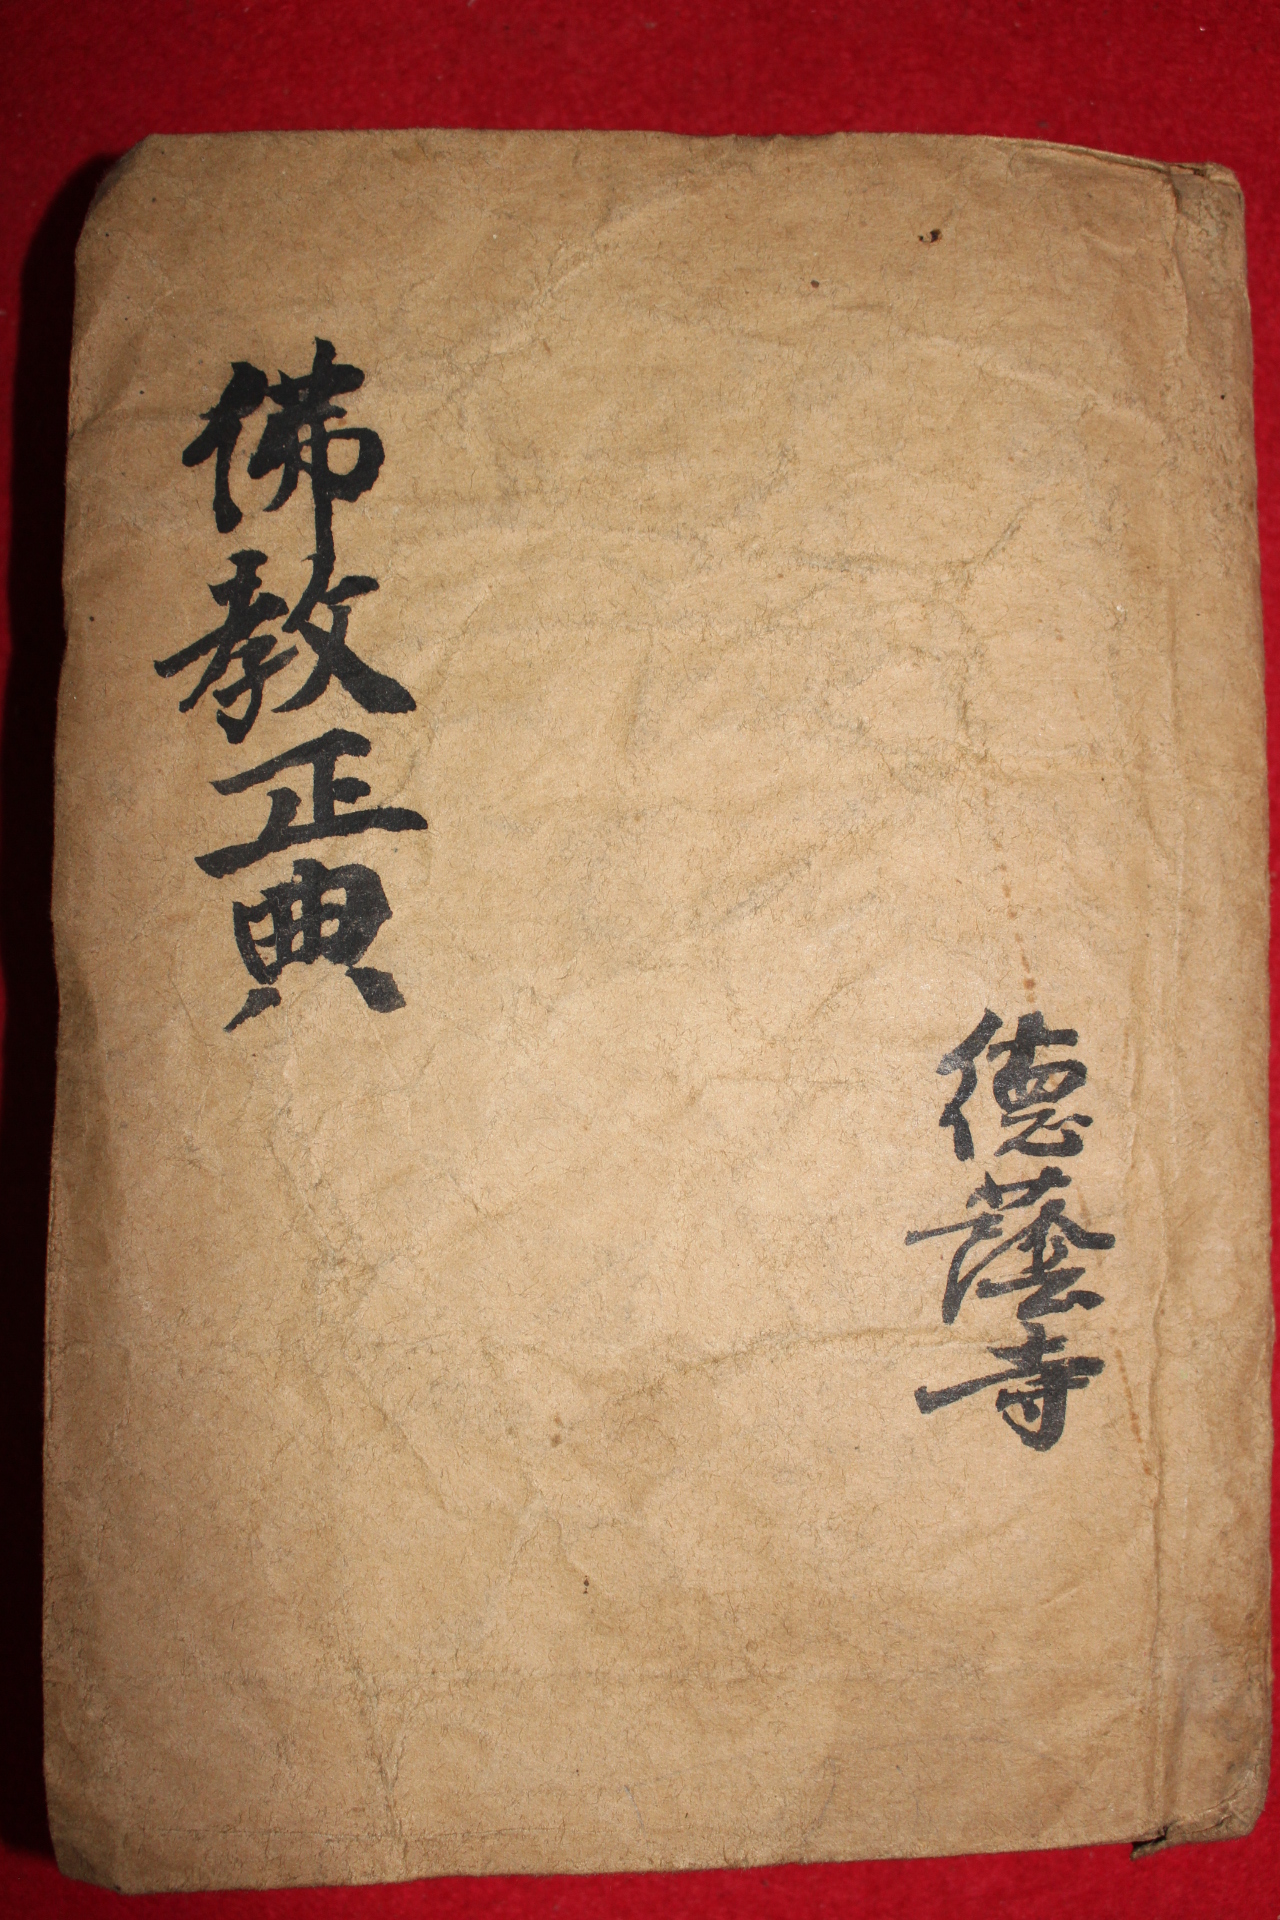 德蔭寺
佛敎正典